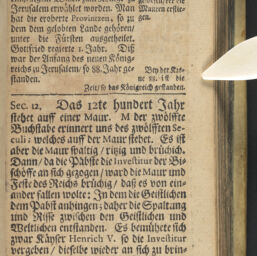 Jerusalem erwöhlet worden. Man
hat die eroberte Provinzen, so zu
dem dem gelobten Lande gehören/
unter die Fürsten ausgetheilet.
Gottfried regierte 1. Jahr. Diß
war der Anfang des neuen König-
reichs zu Jerusalem/ so 88. Jahr ge-
standen.
Mauren ersttie-
gen.
Bey der Kir-
che
Zeit/ so das Königreich gestanden.
Sec. 12. Das 12te hundert Jahr
stehet auff einer Maur. M der zwölffte
Buchstabe erinnert uns des zwölfften Se-
culi: welches auff der Maur stehet. Es ist
aber die Maur spaltig / rißig und brüchich.
Dann/ da die Päbste die Investitur der Bi-
schöffe an sich gezogen/ ward die Maur und
Feste des Reichs brüchig/ daß es von ein-
ander fallen wolte: In dem die Geistlichen
dem Pabst anhingen; daher die Spaltung
und Risse zwischen den Geistlichen und
Weltlichen entstanden. Es bemühete sich
zwar Käyser Henrich V. so die Investitur
vergeben / dieselbe wieder an sich zu brin-